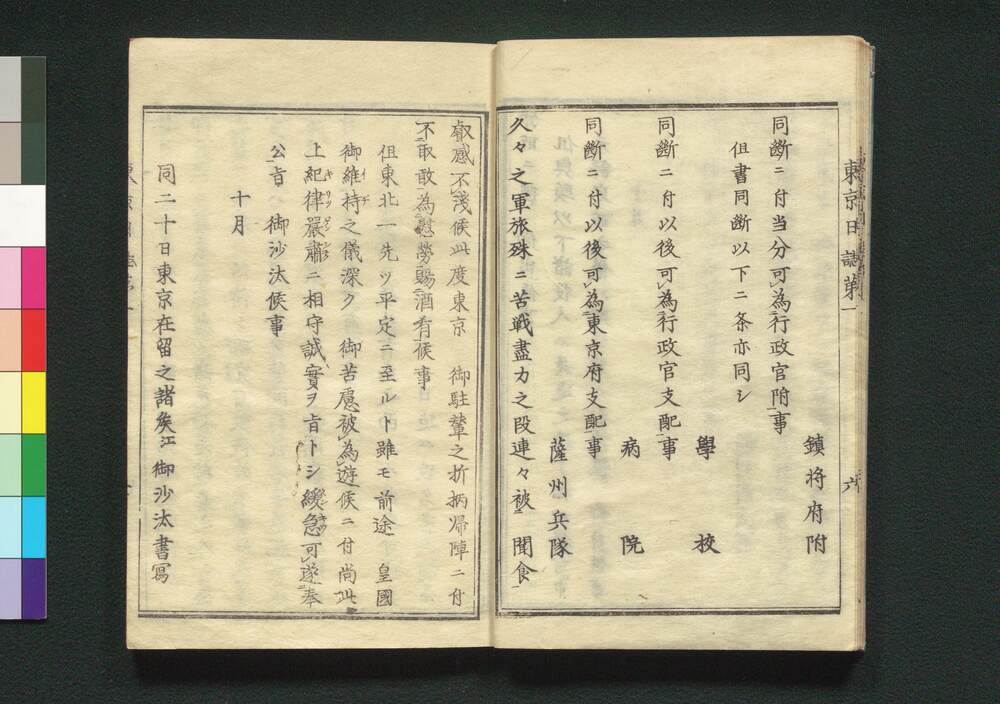 東京日誌第一
六
鎮将府附
同断ニ付当分可為行政官附事
但書同断以下二条亦同シ
學校
同断ニ付以後可為行政官支配事
病院
同断ニ付以後可為東京府支配事
薩州兵隊
久々之軍旅殊ニ苦戦盡力之段連々被聞食
叡感不淺候此度東京　御駐輦之折柄帰陣ニ付
不取敢為慰勞賜酒肴候事
但東北一先ツ平定ニ至ルト雖モ前途　皇國
御維持之儀深ク　御苦慮被為遊候ニ付尚此
上紀律嚴肅ニ相守誠實ヲ旨トシ緩急可遂奉
公旨　御沙汰候事
十月
同二十日東京在留之諸矦江御沙汰書寫